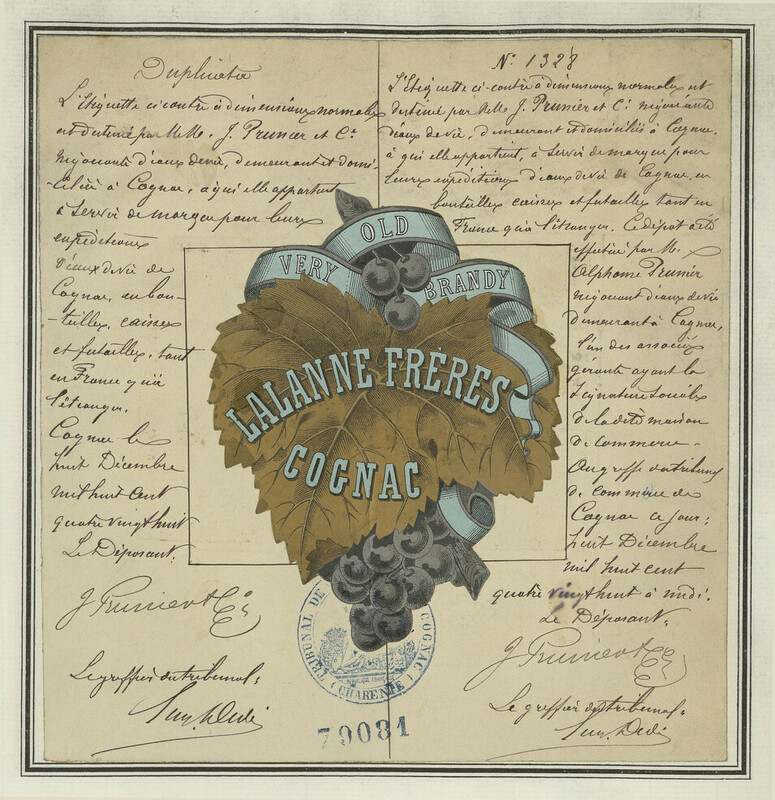 Duplicata
L'Etiquette ci-contre à dimensions normales
est destinée par MM. J. Prunier et Cie
négociants d'eaux de vie, demeurant et domi-
-ciliés à Cognac, à qui elle appartient
à servir de marque pour leurs
expéditions
d'eaux de vie de
Cognac, en bou-
-teilles, caisses
et futailles, tant
en France qu'à
l'étranger.
Cognac le
huit Décembre
mil huit cent
quatre vingt huit
Le Déposant:
J. Prunier & Cie
Le greffier du tribunal:
No 1328
L'Etiquette ci-contre à dimensions normales est
destinée par MM. J. Prunier et Cie négociants
d'eaux de vie, demeurant et domiciliés à Cognac,
à qui elle appartient, à servir de marque pour
leurs expéditions d'eaux de vie de Cognac, en
bouteilles caisses et futailles tant en
France qu'à l'étranger. Ce dépôt a été
effectué par M.
Alphonse Prunier
négociant d'eaux de vie
demeurant à Cognac,
l'un des associés
gérants ayant la
signature sociale
de la dite maison
de commerce.
Au greffe du tribunal
de commerce de
Cognac ce jour:
huit Décembre
mil huit cent
quatre vingt huit à midi.
Le Déposant:
J. Prunier & Cie
Le greffier du tribunal:
VERY OLD BRANDY
LALANNE FRÈRES
COGNAC
TRIBUNAL DE COGNAC
(CHARENTE)
79081